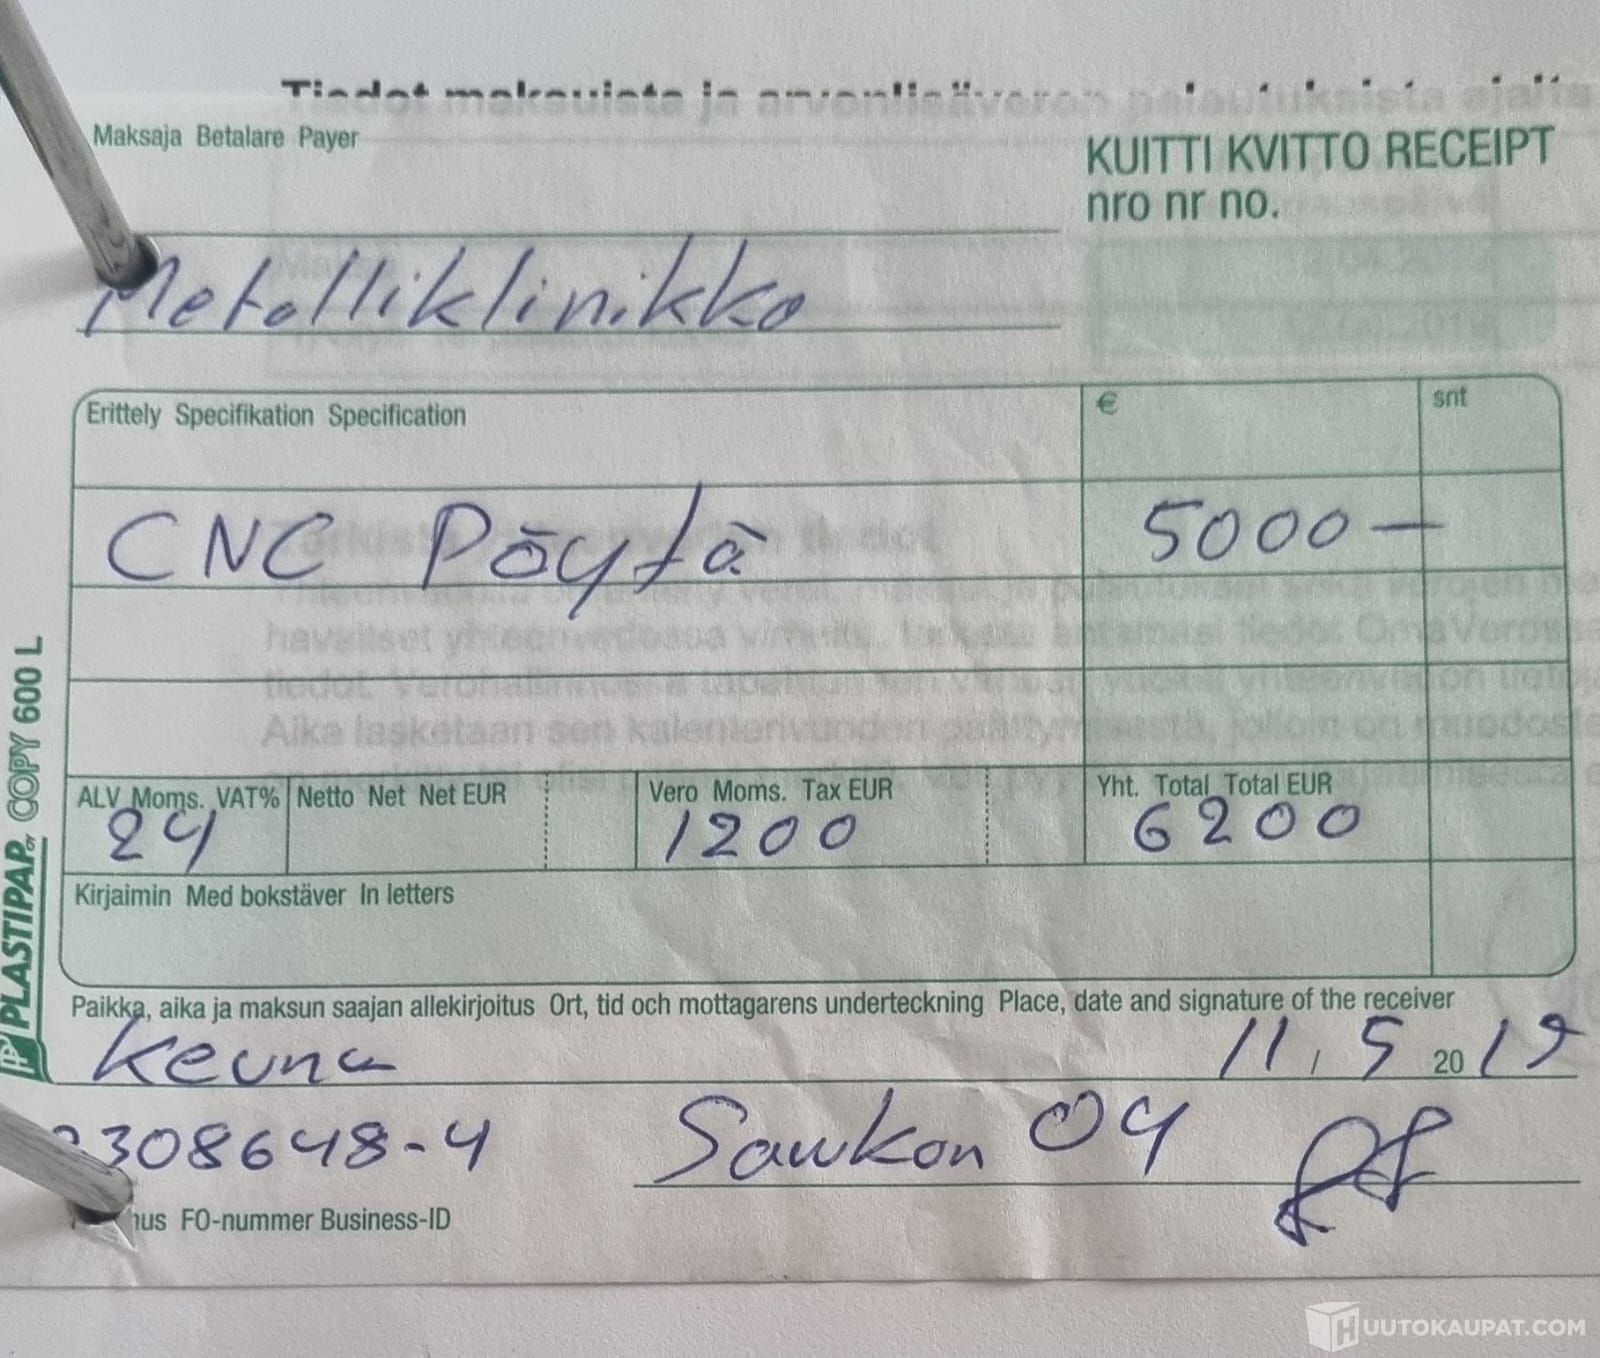 Tiedot maksuista ja arvonlisäveron palautuksista ajalta
Maksaja Betalare Payer
KUITTI KVITTO RECEIPT
nro nr no.
Metalliklinikko
Erittely Specifikation Specification
€
snt
CNC Pöytä
5000 —
havaitset yhteenvedossa tiedot OmaVerossa
tiedot.
Aika lasketaan sen kalenterivuoden päättymisestä, jolloin on muodoste
ALV Moms. VAT%
Netto Net Net EUR
Vero Moms. Tax EUR
Yht. Total Total EUR
24
1200
6200
Kirjaimin Med bokstäver In letters
PLASTIPAP OY COPY 600 L
Paikka, aika ja maksun saajan allekirjoitus Ort, tid och mottagarens underteckning Place, date and signature of the receiver
11 / 5 20 19
308648-4
Sawkon OY
nus FO-nummer Business-ID
HUUTOKAUPAT.COM